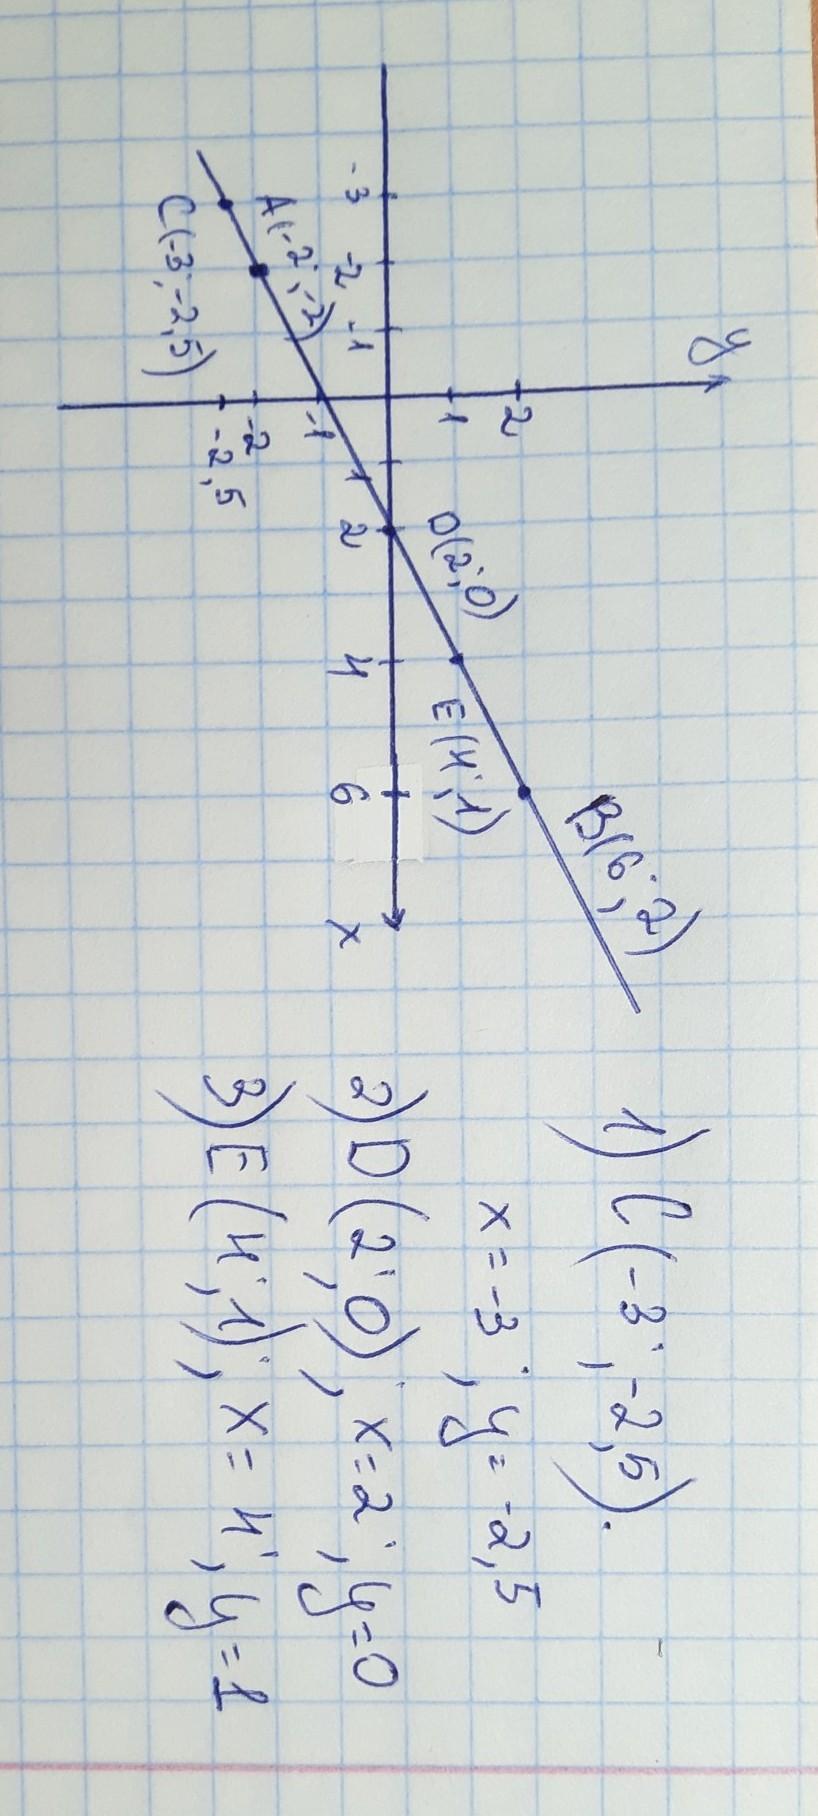 y
2
1
-3 -2 -1
1 2 4 6 x
-1
-2
-2,5
A(-2;-2)
C(-3;-2,5)
D(2;0)
E(4;1)
B(6;2)
1) C(-3;-2,5).
x=-3; y=-2,5
2) D(2;0); x=2; y=0
3) E(4;1); x=4; y=1